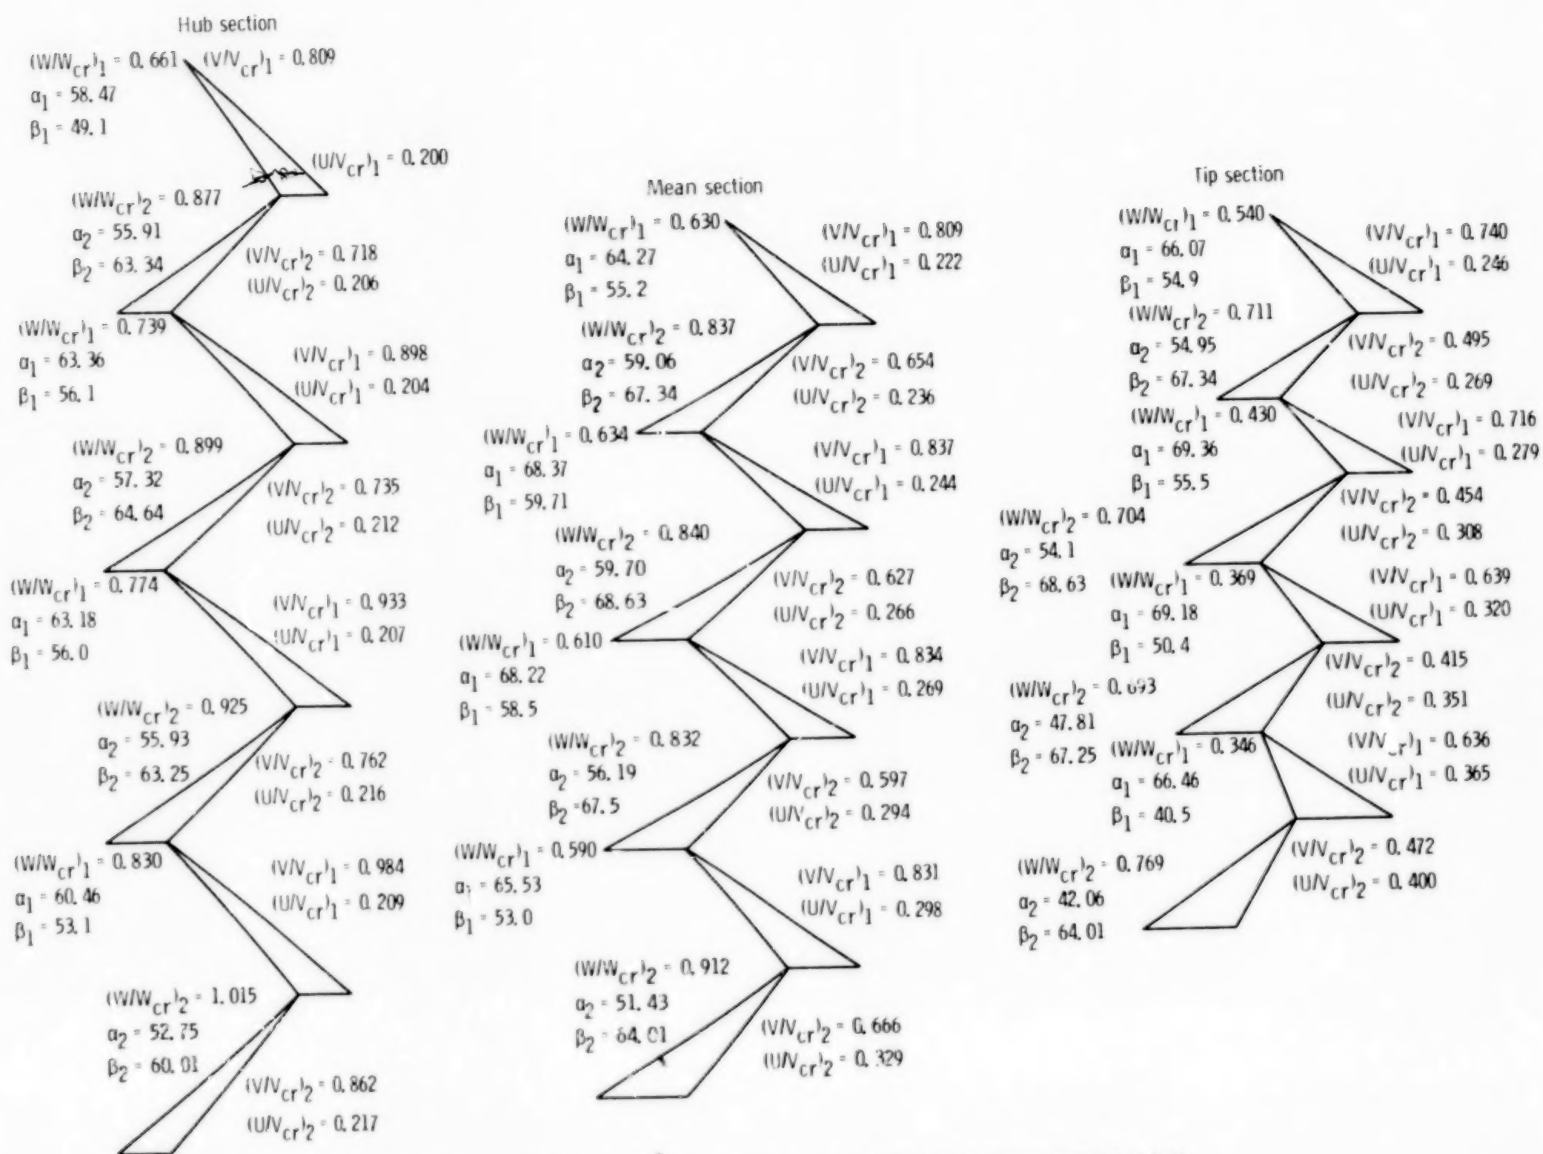 Hub section
(W/Wcr)1 = 0.661
(V/Vcr)1 = 0.809
α1 = 58.47
β1 = 49.1
(U/Vcr)1 = 0.200
(W/Wcr)2 = 0.877
α2 = 55.91
β2 = 63.34
(V/Vcr)2 = 0.718
(U/Vcr)2 = 0.206
(W/Wcr)1 = 0.739
α1 = 63.36
β1 = 56.1
(V/Vcr)1 = 0.898
(U/Vcr)1 = 0.204
(W/Wcr)2 = 0.899
α2 = 57.32
β2 = 64.64
(V/Vcr)2 = 0.735
(U/Vcr)2 = 0.212
(W/Wcr)1 = 0.774
α1 = 63.18
β1 = 56.0
(V/Vcr)1 = 0.933
(U/Vcr)1 = 0.207
(W/Wcr)2 = 0.925
α2 = 55.93
β2 = 63.25
(V/Vcr)2 = 0.762
(U/Vcr)2 = 0.216
(W/Wcr)1 = 0.830
α1 = 60.46
β1 = 53.1
(V/Vcr)1 = 0.984
(U/Vcr)1 = 0.209
(W/Wcr)2 = 1.015
α2 = 52.75
β2 = 60.01
(V/Vcr)2 = 0.862
(U/Vcr)2 = 0.217
Mean section
(W/Wcr)1 = 0.630
α1 = 64.27
β1 = 55.2
(V/Vcr)1 = 0.809
(U/Vcr)1 = 0.222
(W/Wcr)2 = 0.837
α2 = 59.06
β2 = 67.34
(V/Vcr)2 = 0.654
(U/Vcr)2 = 0.236
(W/Wcr)1 = 0.634
α1 = 68.37
β1 = 59.71
(V/Vcr)1 = 0.837
(U/Vcr)1 = 0.244
(W/Wcr)2 = 0.840
α2 = 59.70
β2 = 68.63
(V/Vcr)2 = 0.627
(U/Vcr)2 = 0.266
(W/Wcr)1 = 0.610
α1 = 68.22
β1 = 58.5
(V/Vcr)1 = 0.834
(U/Vcr)1 = 0.269
(W/Wcr)2 = 0.832
α2 = 56.19
β2 = 67.5
(V/Vcr)2 = 0.597
(U/Vcr)2 = 0.294
(W/Wcr)1 = 0.590
α1 = 65.53
β1 = 53.0
(V/Vcr)1 = 0.831
(U/Vcr)1 = 0.298
(W/Wcr)2 = 0.912
α2 = 51.43
β2 = 64.01
(V/Vcr)2 = 0.666
(U/Vcr)2 = 0.329
Tip section
(W/Wcr)1 = 0.540
α1 = 66.07
β1 = 54.9
(V/Vcr)1 = 0.740
(U/Vcr)1 = 0.246
(W/Wcr)2 = 0.711
α2 = 54.95
β2 = 67.34
(V/Vcr)2 = 0.495
(U/Vcr)2 = 0.269
(W/Wcr)1 = 0.430
α1 = 69.36
β1 = 55.5
(V/Vcr)1 = 0.716
(U/Vcr)1 = 0.279
(W/Wcr)2 = 0.704
α2 = 54.1
β2 = 68.63
(V/Vcr)2 = 0.454
(U/Vcr)2 = 0.308
(W/Wcr)1 = 0.369
α1 = 69.18
β1 = 50.4
(V/Vcr)1 = 0.639
(U/Vcr)1 = 0.320
(W/Wcr)2 = 0.693
α2 = 47.81
β2 = 67.25
(V/Vcr)2 = 0.415
(U/Vcr)2 = 0.351
(W/Wcr)1 = 0.346
α1 = 66.46
β1 = 40.5
(V/Vcr)1 = 0.636
(U/Vcr)1 = 0.365
(W/Wcr)2 = 0.769
α2 = 42.06
β2 = 64.01
(V/Vcr)2 = 0.472
(U/Vcr)2 = 0.400